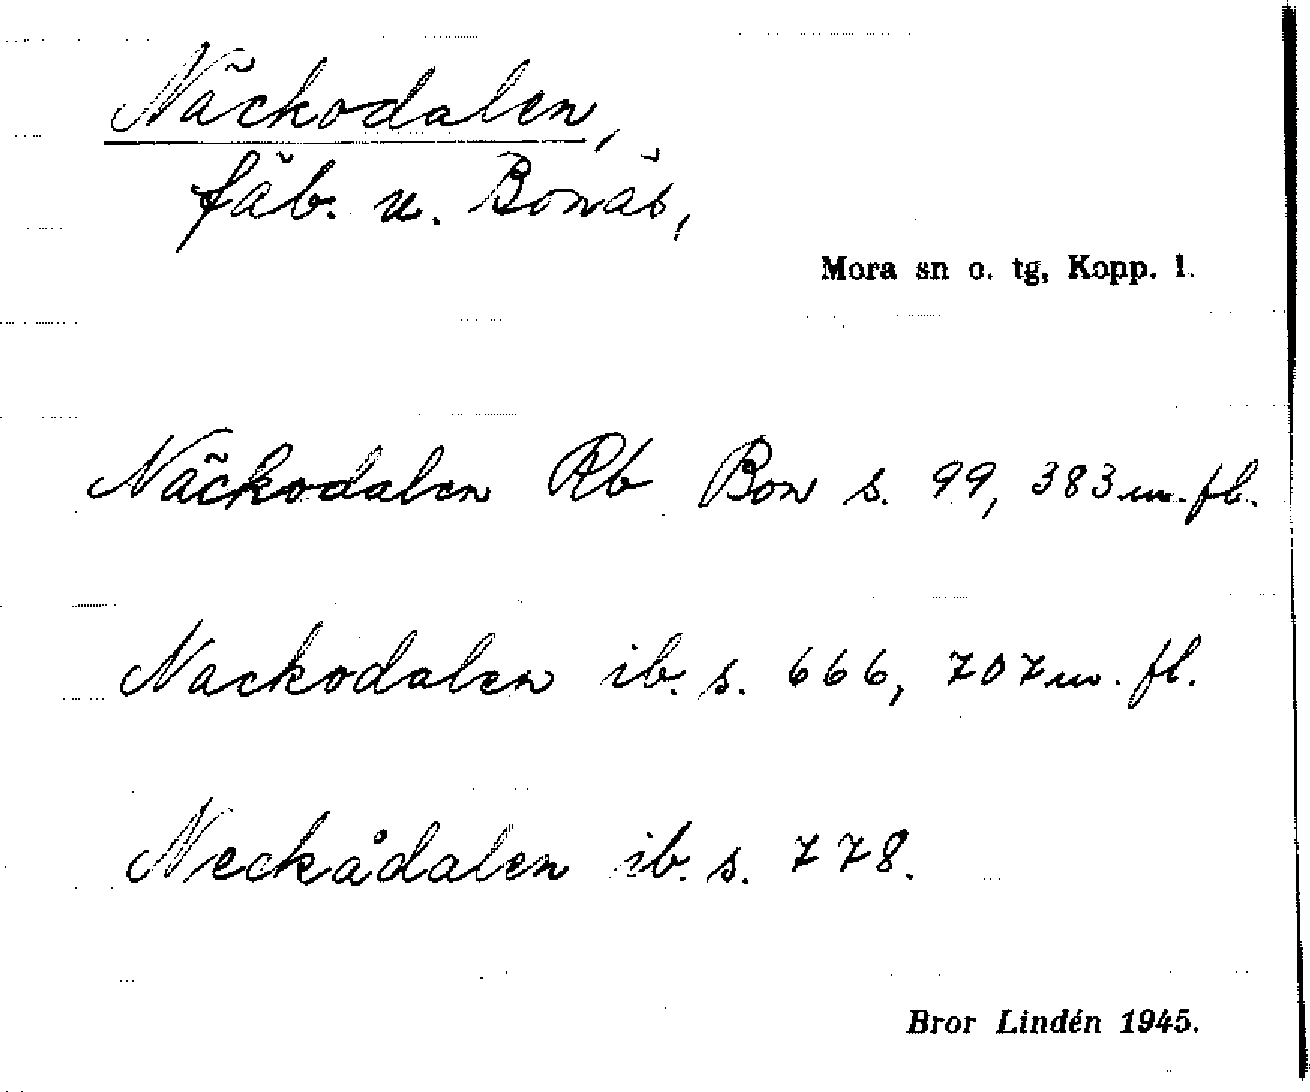 Näckodalen,
fäb. u. Bonäs,
Mora sn o. tg, Kopp. l.
Näckodalen Rb Bon s. 99, 383 m. fl.
Nackodalen ib. s. 666, 707 m. fl.
Neckådalen ib. s. 778.
Bror Lindén 1945.